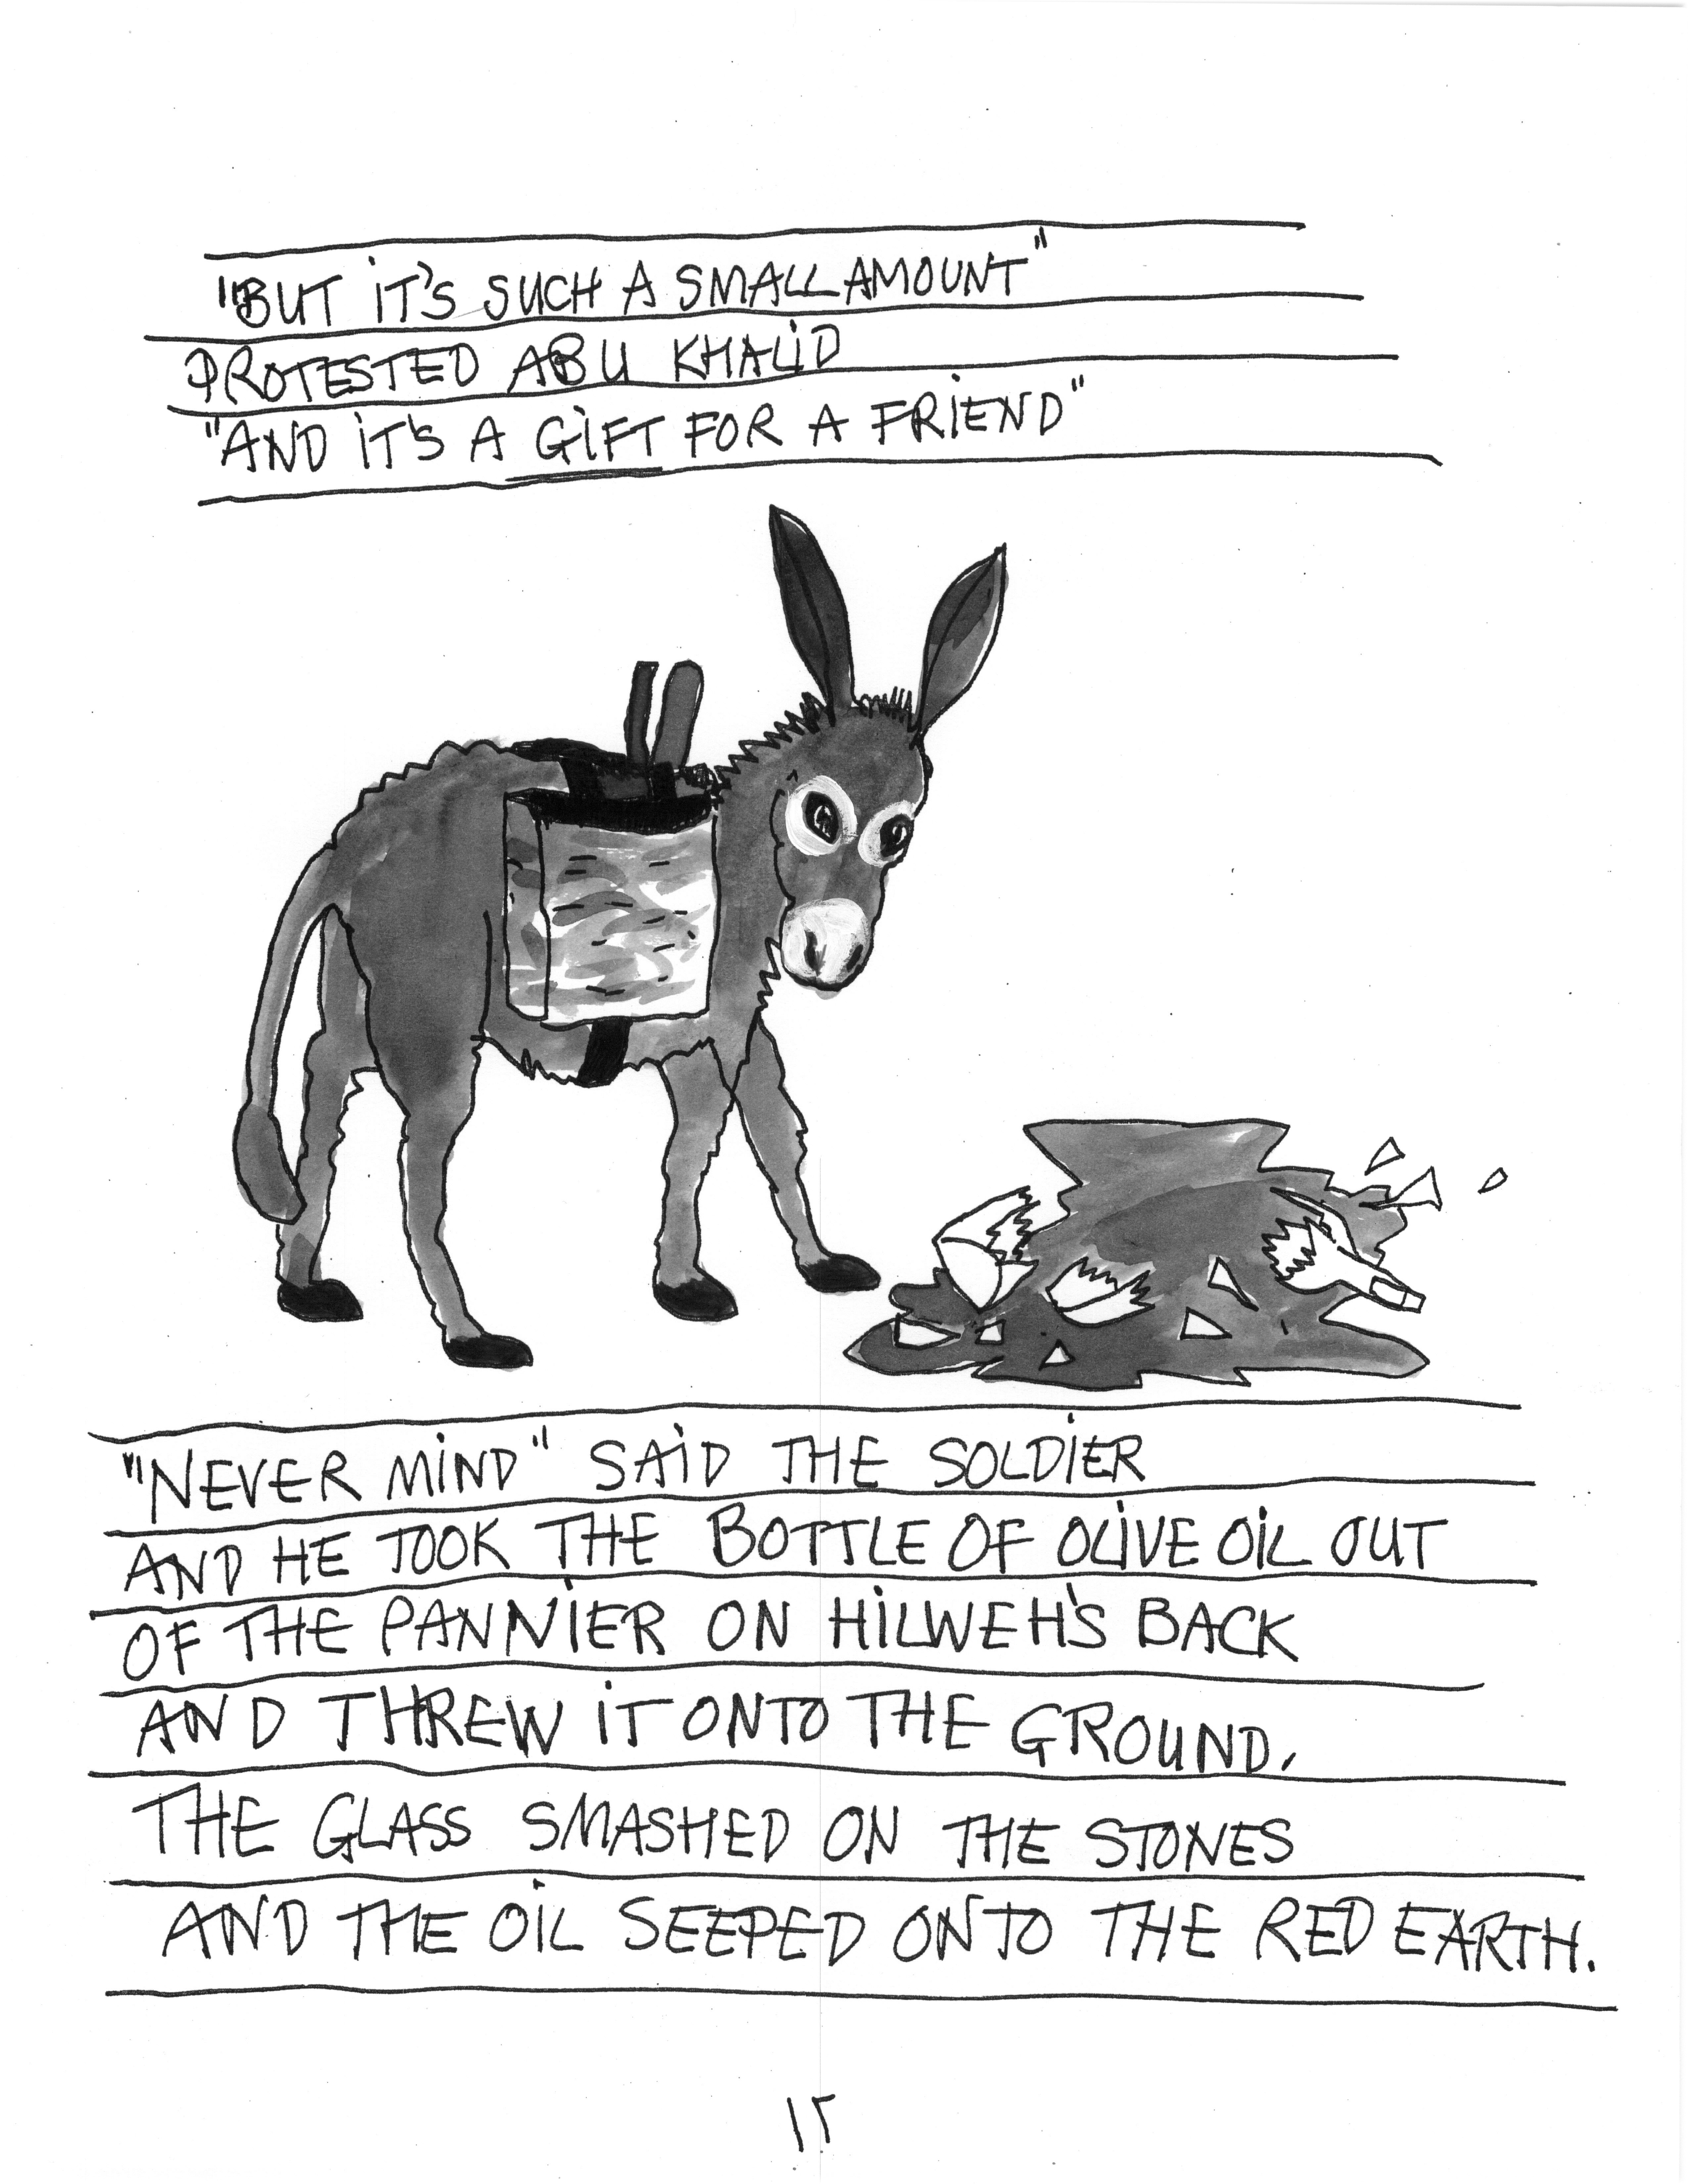 "BUT iT'S SUCH A SMALL AMOUNT"
PROTESTED ABU KHALiD
"AND iT'S A GiFT FOR A FRiEND"
"NEVER MiND" SAiD THE SOLDiER
AND HE TOOK THE BOTTLE OF OLiVE OiL OUT
OF THE PANNiER ON HiLWEH'S BACK
AND THREW iT ONTO THE GROUND.
THE GLASS SMASHED ON THE STONES
AND THE OiL SEEPED ONTO THE RED EARTH.
١٢